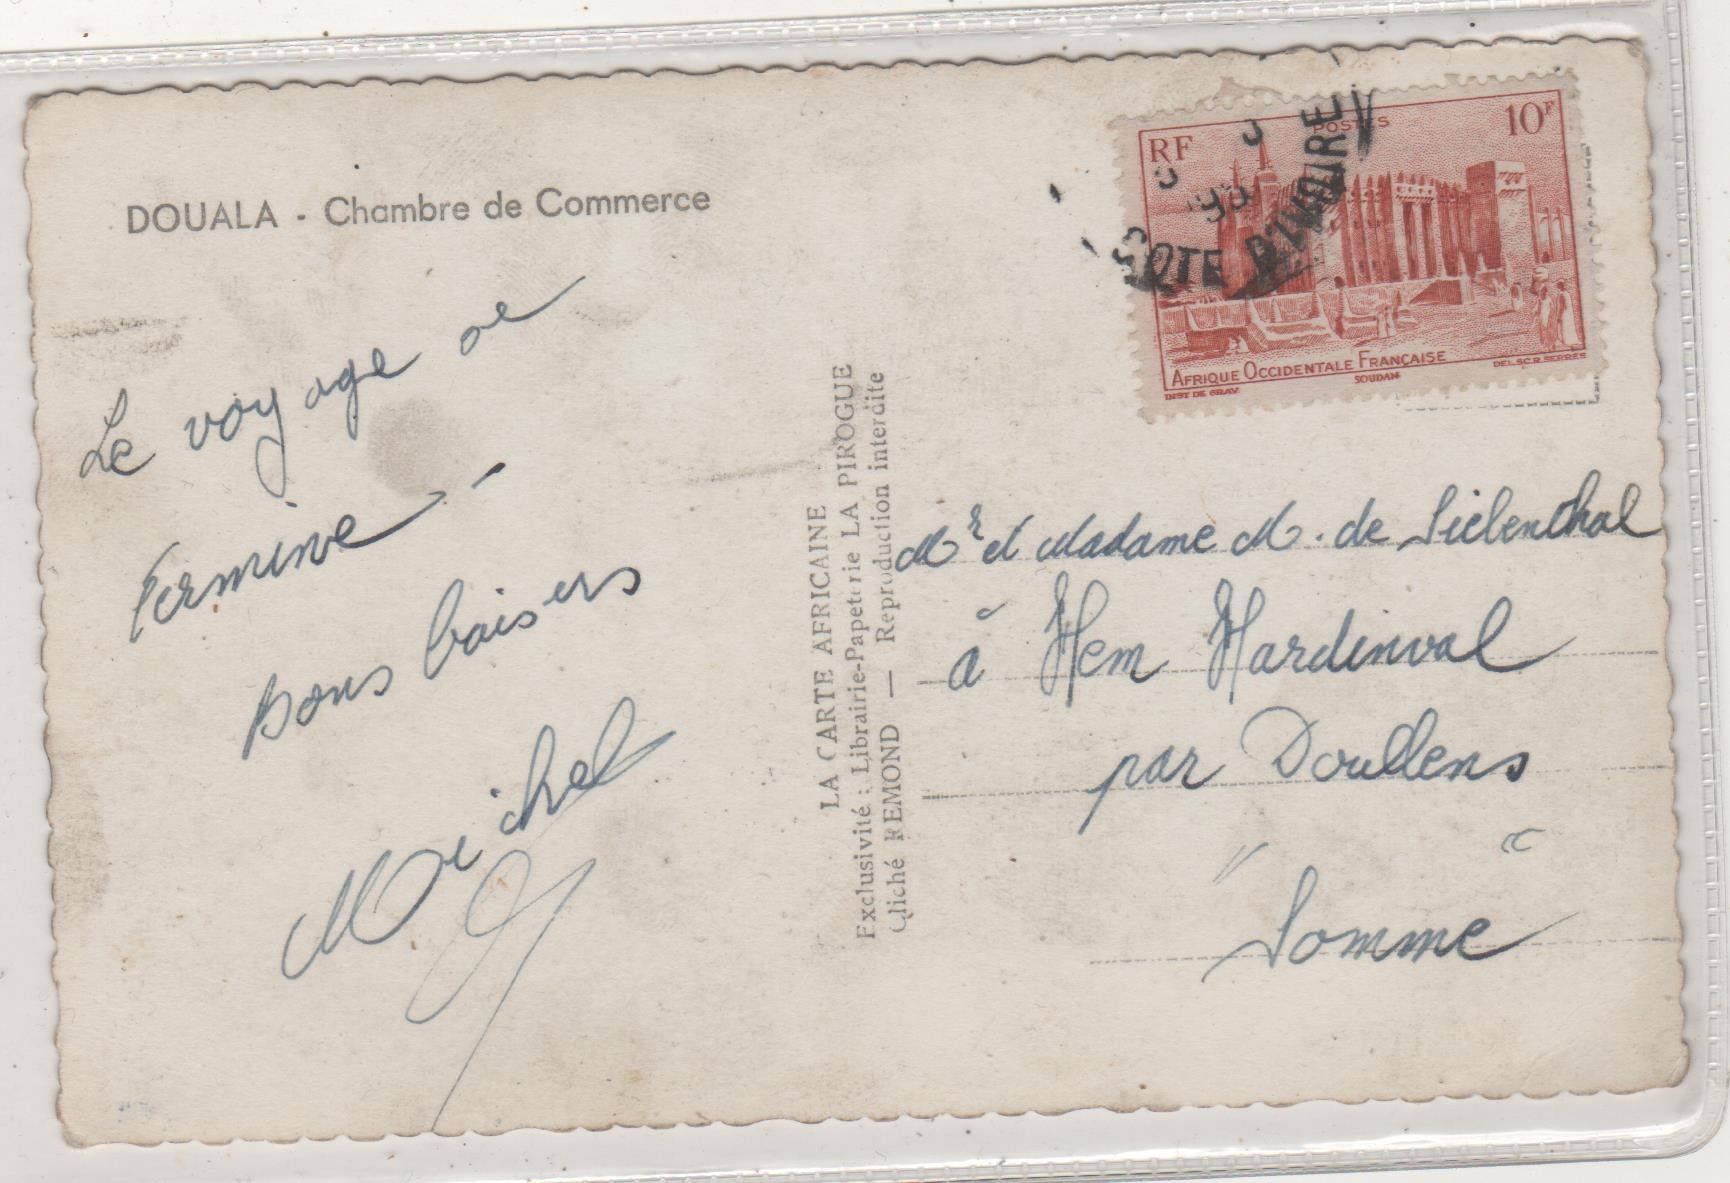 DOUALA - Chambre de Commerce
Le voyage se
termine -
Bons baisers
Michel
LA CARTE AFRICAINE
Exclusivité : Librairie-Papeterie LA PIROGUE
Cliché REMOND — Reproduction interdite
RF
POSTES
10F
AFRIQUE OCCIDENTALE FRANÇAISE
INST DE GRAV
SOUDAN
DEL.SC.R.SERRES
COTE D'IVOIRE
Mr et Madame M. de Sielenthal
à Hem Hardinval
par Doullens
"Somme"